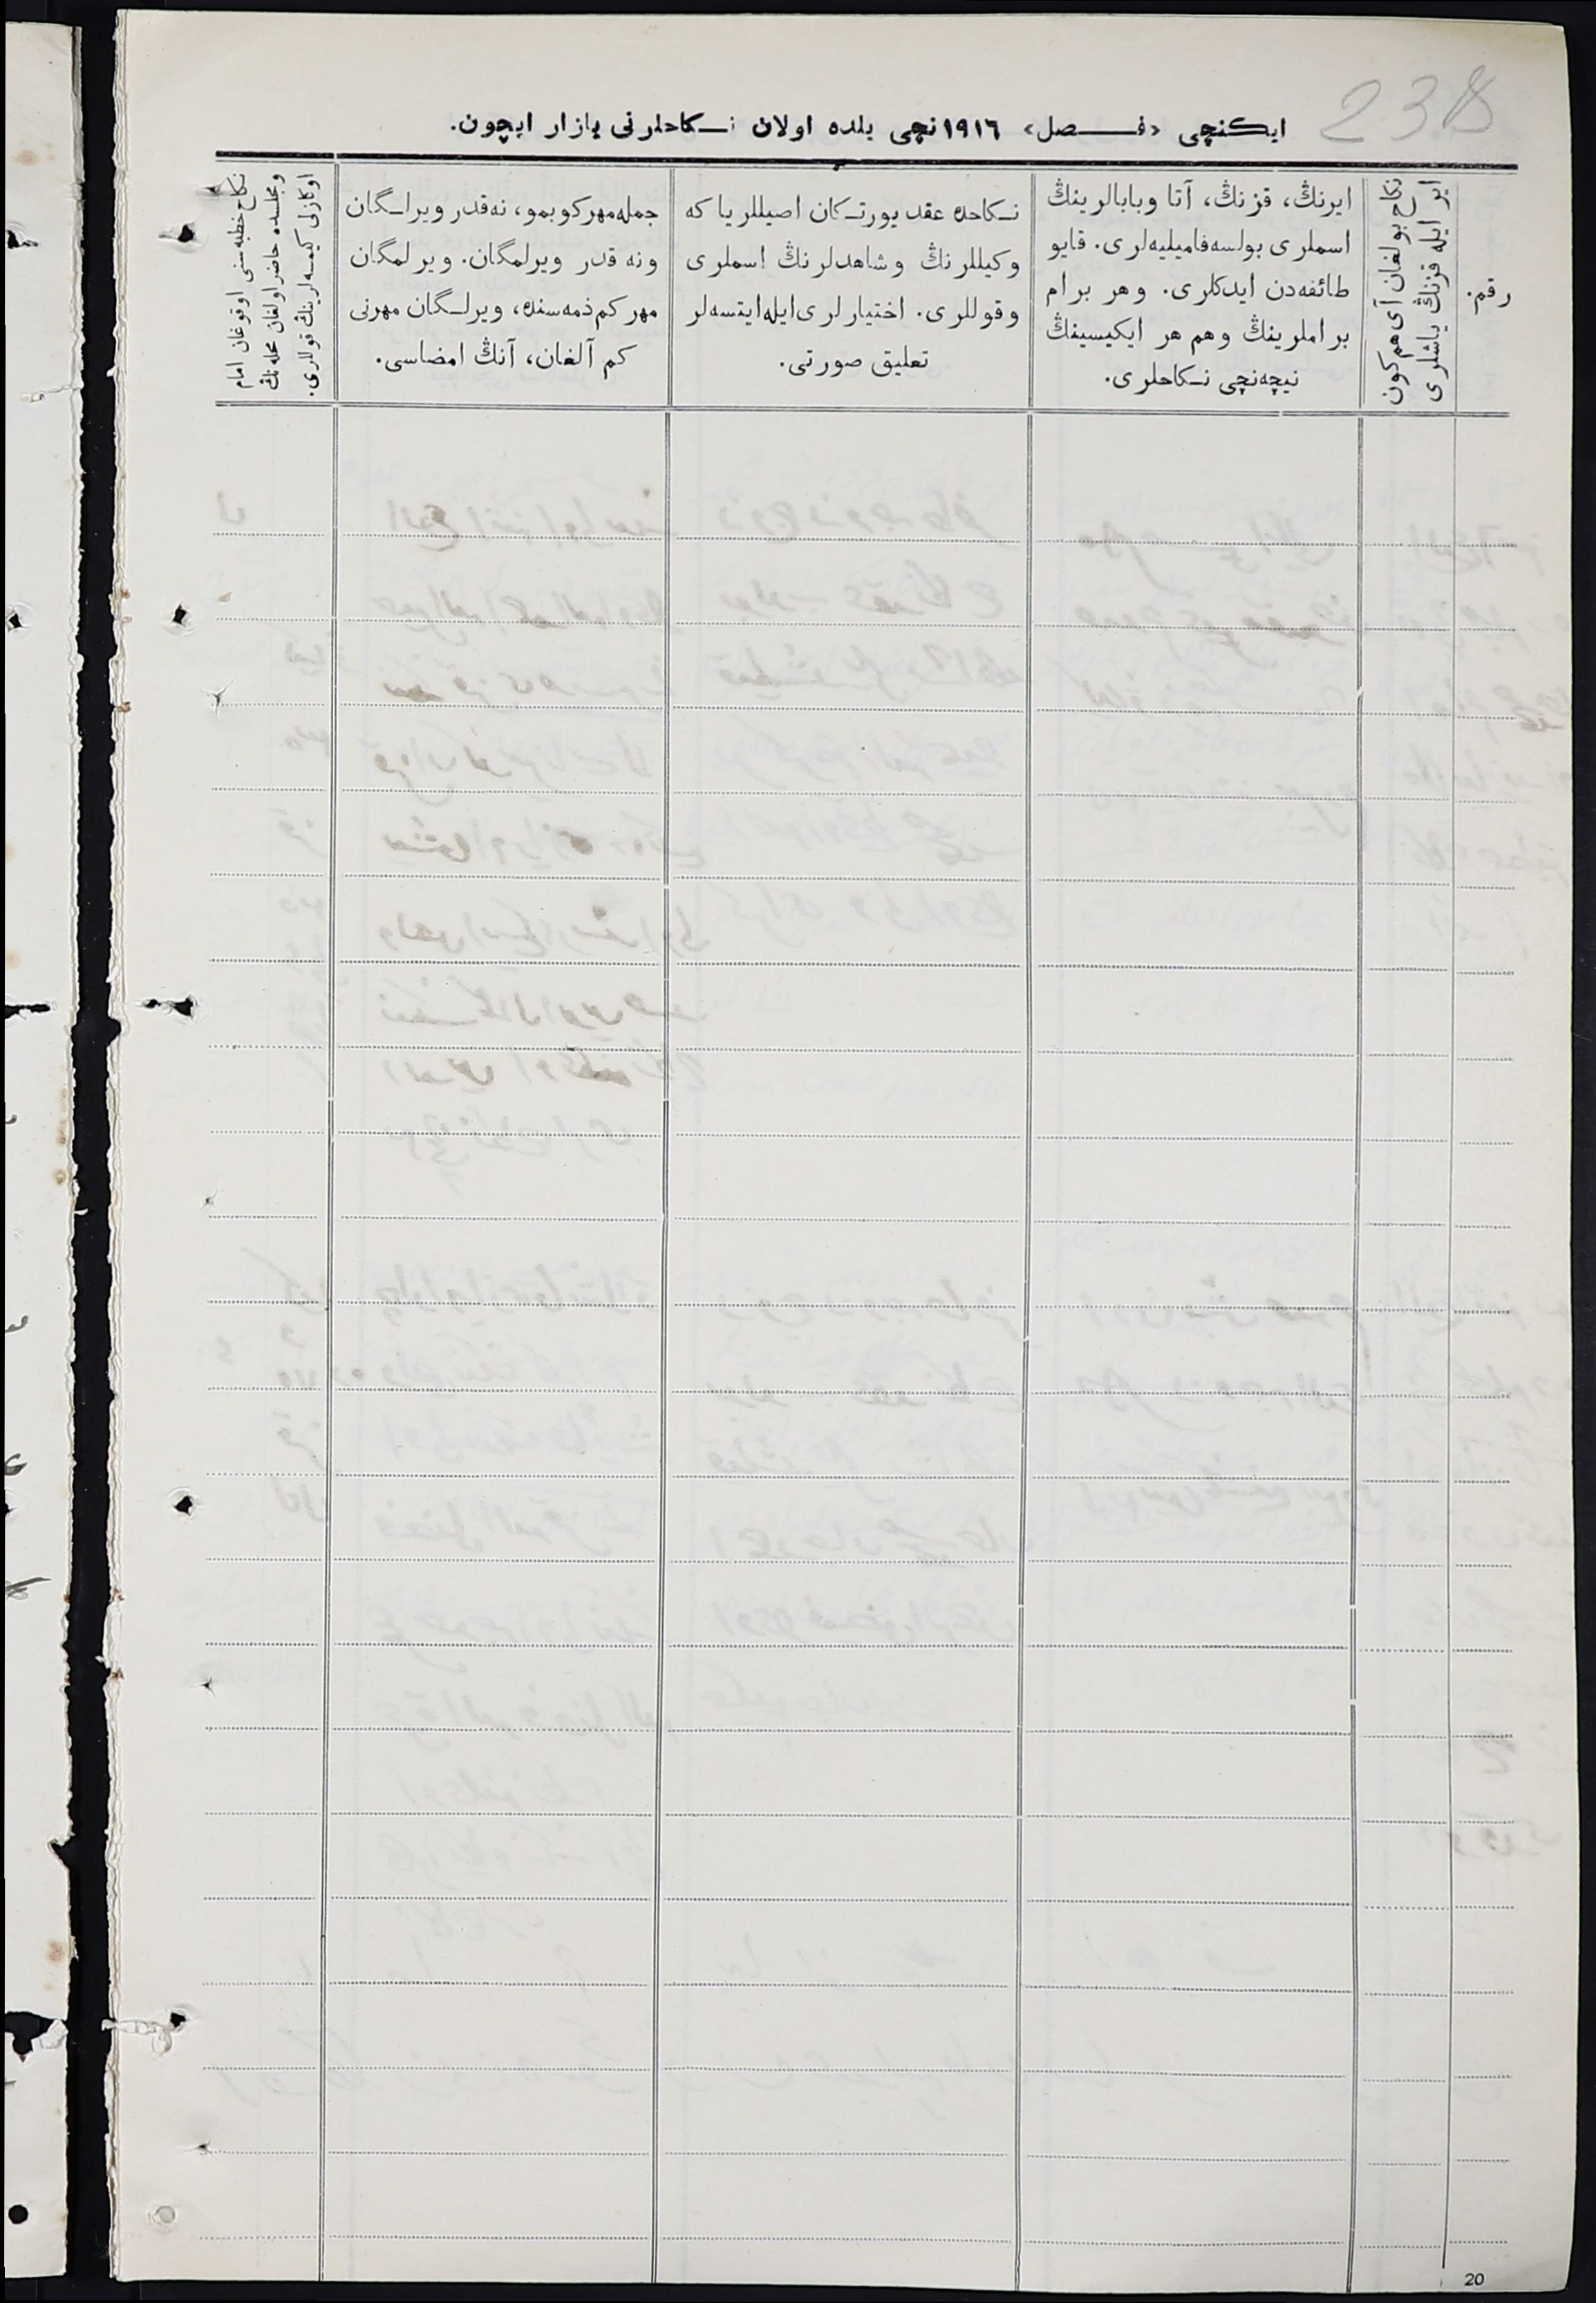 238
ایـکـنچی «فـــصل» ١٩١٦نچی یلده اولان نـکاحلرنی یازار ایچون.
رقم.
نکاح بولغان آی هم کون
ایر ایله قزنڭ یاشلری
ایرنڭ، قزنڭ، آتا وبابالرینڭ
اسملری بولسه فامیلیه‌لری. قایو
طائفه‌دن ایدکلری. وهر برام
براملرینڭ وهم هر ایکیسینڭ
نیچه‌نچی نـکاحلری.
نـکاحده عقد یورتـکان اصیللر یا که
وکیللرنڭ وشاهدلرنڭ اسملری
وقوللری. اختیارلری ایله ایتسه‌لر
تعلیق صورتی.
جمله مهر کوبمو، نه قدر ویرلـگان
ونه قدر ویرلمگان. ویرلمگان
مهر کم ذمه‌سنده، ویرلـگان مهرنی
کم آلغان، آنڭ امضاسی.
نکاح خطبه‌سنی اوقوغان امام
ومجلسده حاضر اولغان محله‌نڭ
اوکازلی کیمسه‌لرینڭ قوللری.
20